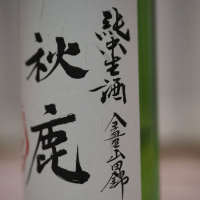 純米生酒 全量山田錦
秋鹿